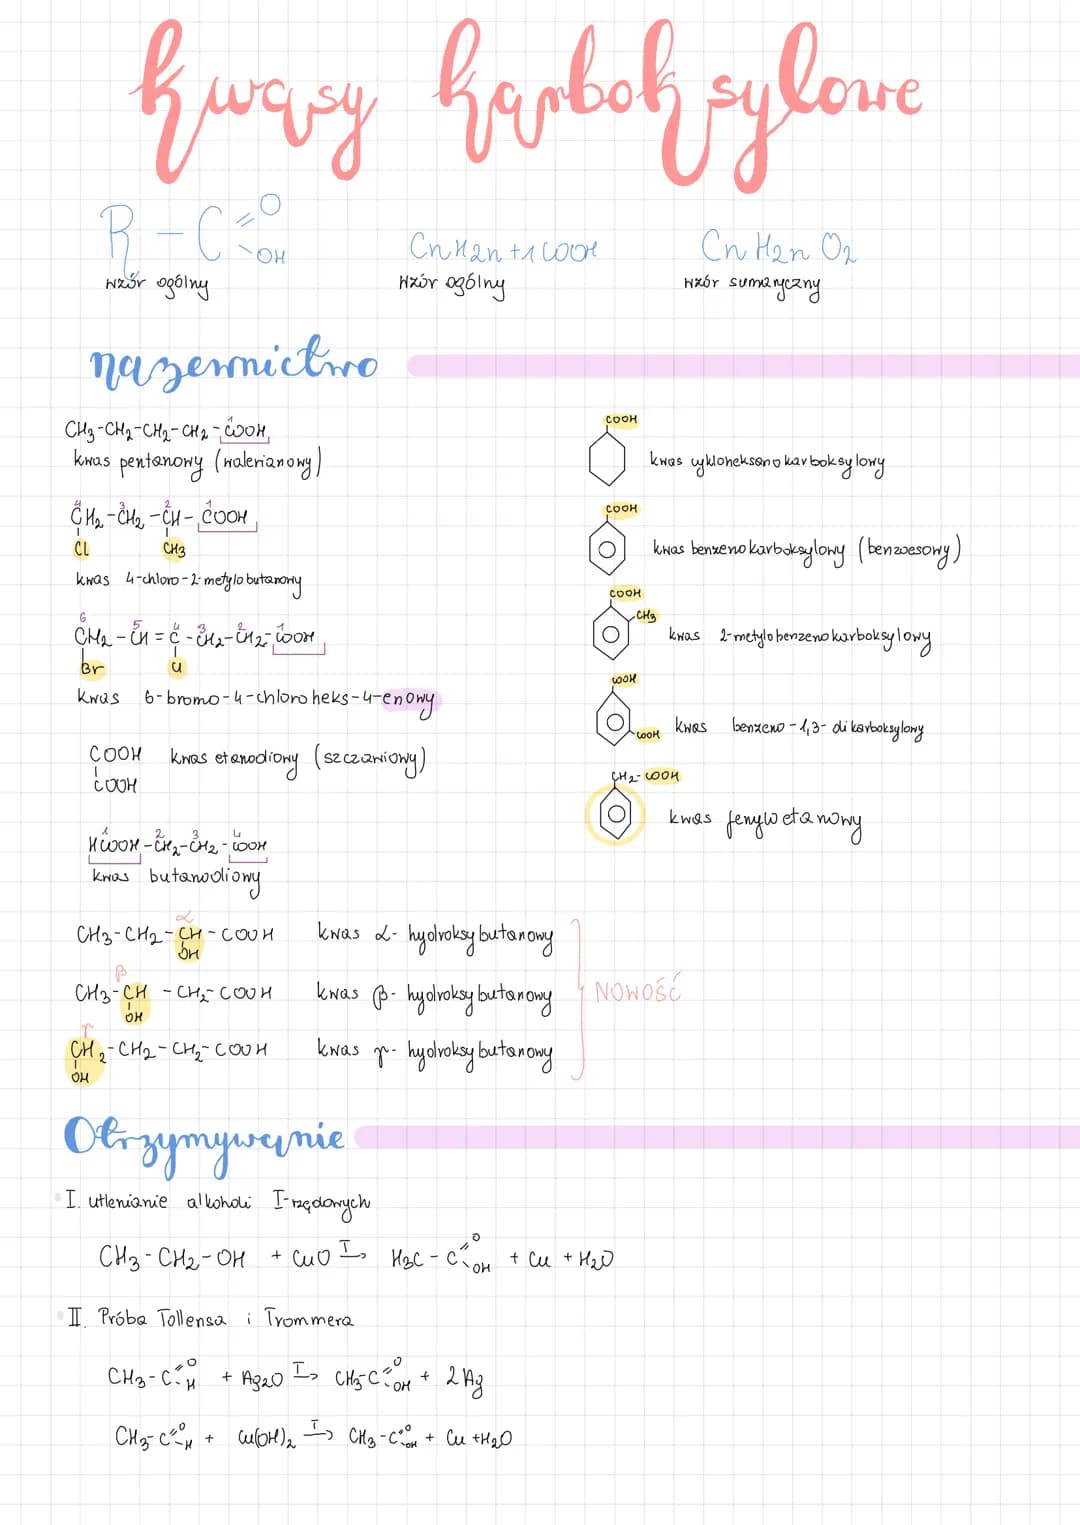 kwasy karboksylowe
R - C = O
OH
wzór ogólny
CnH2n+1COOH
wzór ogólny
CnH2nO2
wzór sumaryczny
nazewnictwo
CH3-CH2-CH2-CH2-COOH
1
kwas pentanowy (walerianowy)
4 3 2 1
CH2-CH2-CH-COOH
Cl CH3
kwas 4-chloro-2-metylobutanowy
6 5 4 3 2 1
CH2-CH=C-CH2-CH2-COOH
Br Cl
kwas 6-bromo-4-chloroheks-4-enowy
COOH
COOH
kwas etanodiowy (szczawiowy)
1 2 3 4
HCOOH-CH2-CH2-COOH
kwas butanodiowy
α
CH3-CH2-CH-COOH
OH
kwas α-hydroksybutanowy
β
CH3-CH-CH2-COOH
OH
kwas β-hydroksybutanowy
γ
CH2-CH2-CH2-COOH
OH
kwas γ-hydroksybutanowy
NOWOŚĆ
COOH
kwas cykloheksanokarboksylowy
COOH
kwas benzenokarboksylowy (benzoesowy)
COOH
CH3
kwas 2-metylobenzenokarboksylowy
COOH
COOH
kwas benzeno-1,3-dikarboksylowy
CH2-COOH
kwas fenyloetanowy
Otrzymywanie
I. utlenianie alkoholi I-rzędowych
CH3-CH2-OH + CuO T→ H3C-C=O OH + Cu + H2O
II. Próba Tollensa i Trommera
CH3-C=O H + Ag2O T→ CH3-C=O OH + 2Ag
CH3-C=O H + Cu(OH)2 T→ CH3-C=O OH + Cu + H2O